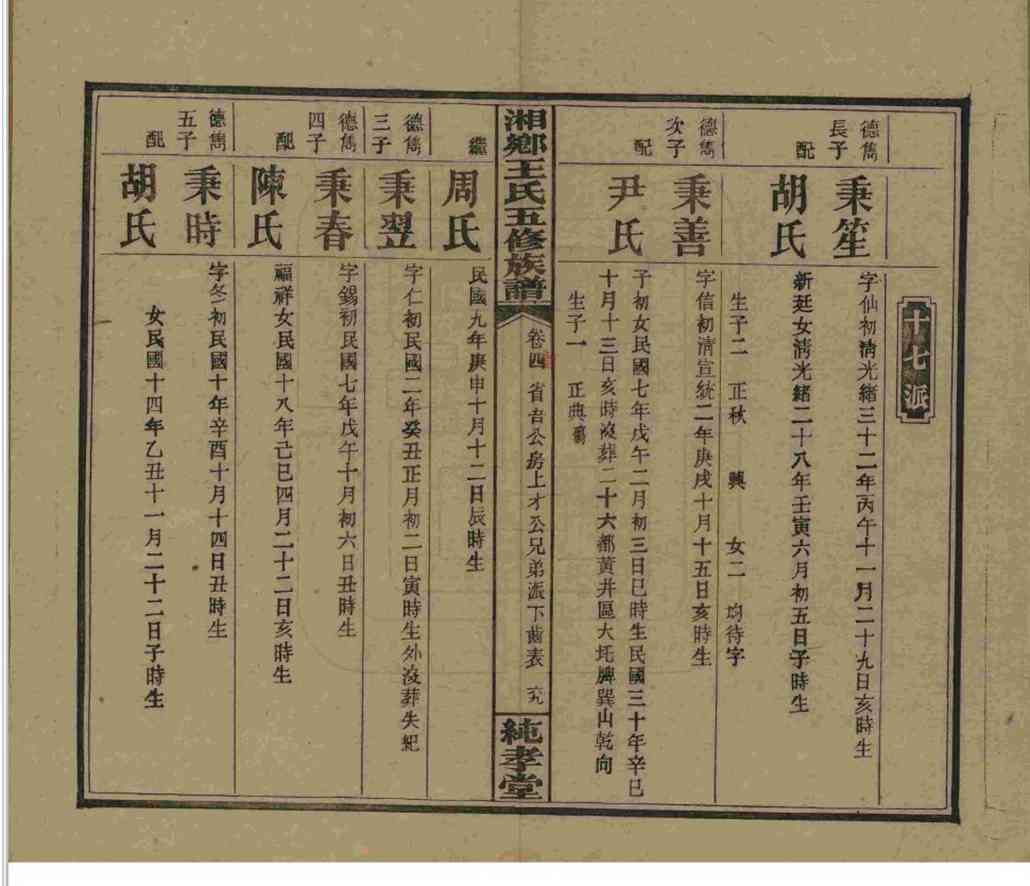 十七派
德雋
長子
秉笙
字仙初淸光緖三十二年丙午十一月二十九日亥時生
配
胡氏
新廷女淸光緖二十八年壬寅六月初五日子時生
生子二　正秋　興　女二　均待字
德雋
次子
秉善
字信初淸宣統二年庚戌十月十五日亥時生
配
尹氏
子初女民國七年戊午二月初三日巳時生民國三十年辛巳
十月十三日亥時歿葬二十六都黃井區大坵脾巽山乾向
生子一　正典
湘鄉王氏五修族譜
卷四　省吾公房上才公兄弟派下齒表　六九
純孝堂
繼
周氏
民國九年庚申十月十二日辰時生
德雋
三子
秉翌
字仁初民國二年癸丑正月初二日寅時生外歿葬失紀
德雋
四子
秉春
字錫初民國七年戊午十月初六日丑時生
配
陳氏
福祥女民國十八年己巳四月二十二日亥時生
德雋
五子
秉時
字冬初民國十年辛酉十月十四日丑時生
配
胡氏
女民國十四年乙丑十一月二十二日子時生